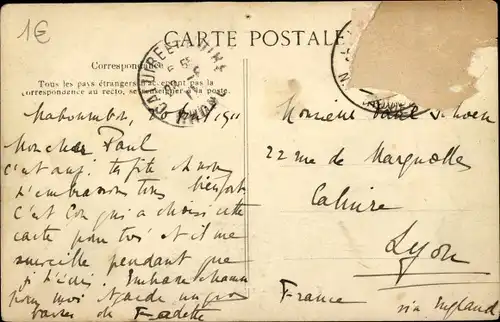 1€
CARTE POSTALE
Correspondance
Tous les pays étrangers n'acceptent pas la
correspondance au recto, se renseigner à la poste.
1911
Mon cher Paul
c'est auj. ta fête et nous
t'embrassons tous bien fort
c'est qui a choisi cette
carte pour toi et il me
surveille pendant que
je t'écris. Embrasse
pour moi garde un gros
baiser de Fadette
Monsieur Paul
22 rue de Margnolles
Caluire
Lyon
France via England